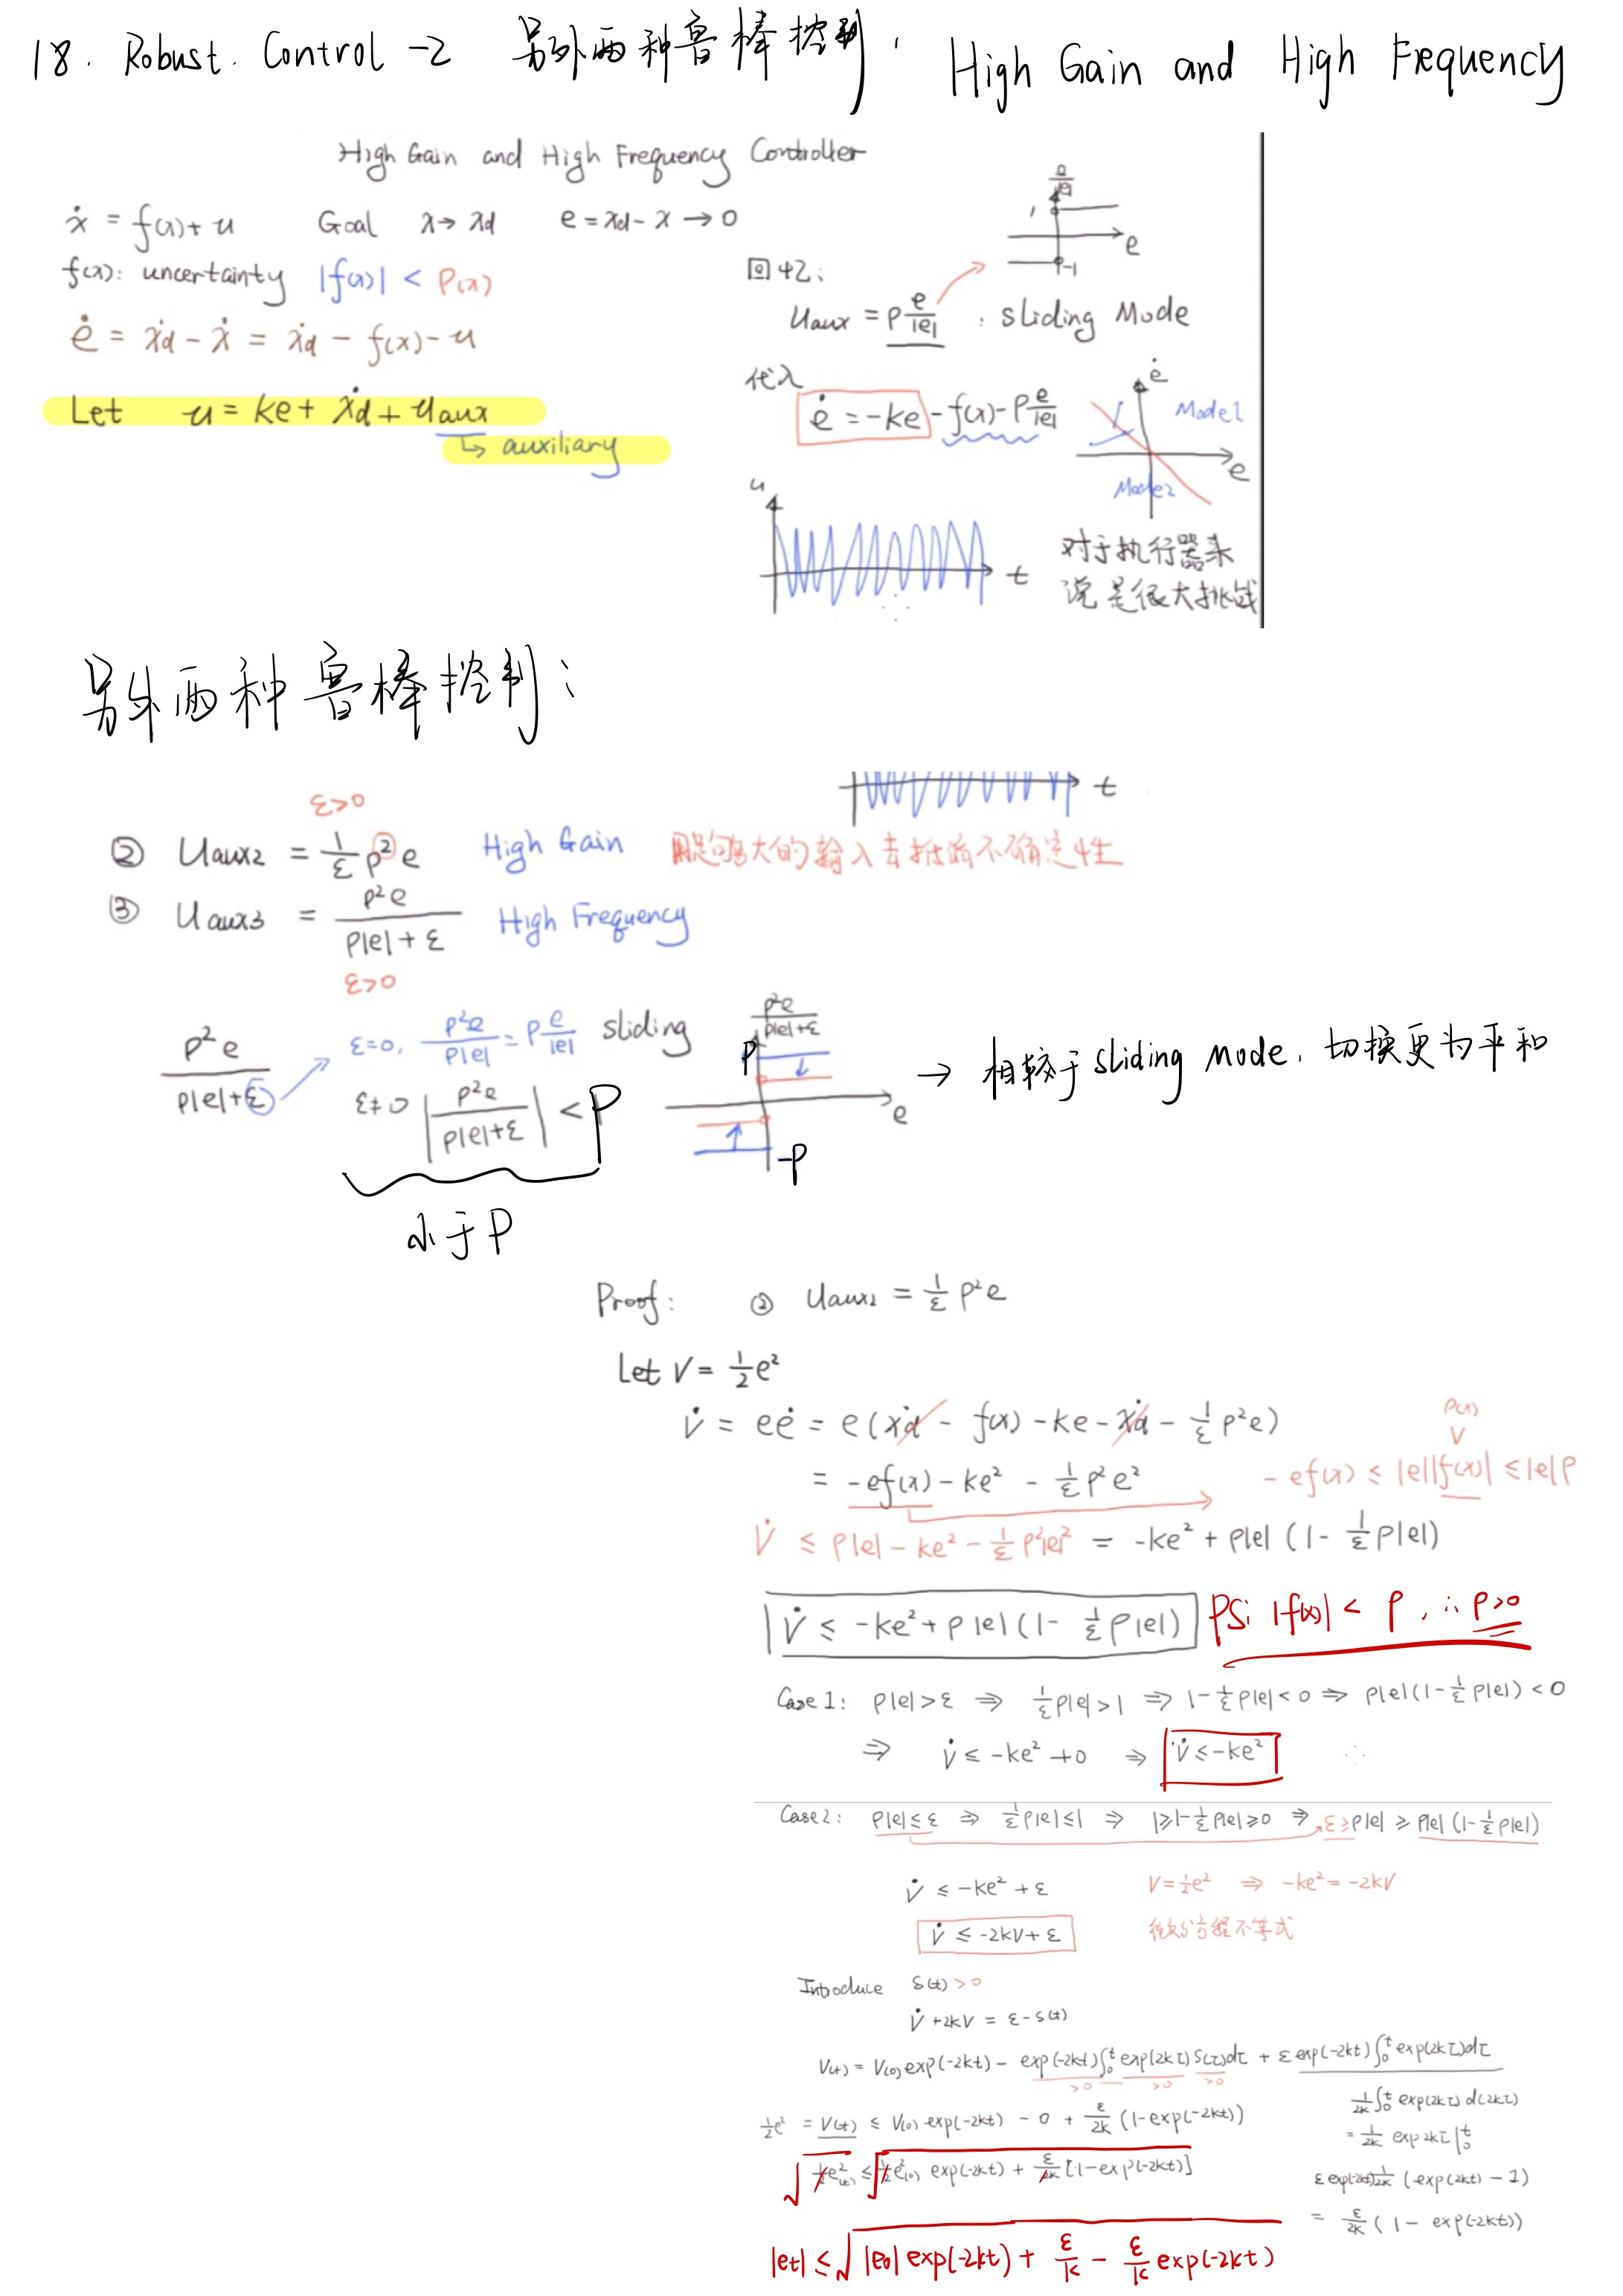 18. Robust. Control -2 另外两种鲁棒控制, High Gain and High Frequency
High Gain and High Frequency Controller
ẋ = f(x) + u Goal x → xd e = xd - x → 0
f(x): uncertainty |f(x)| < ρ(x)
ė = ẋd - ẋ = ẋd - f(x) - u
Let u = ke + ẋd + uaux
↳ auxiliary
e/|e|
1
e
-1
回忆:
uaux = ρ e/|e| : sliding Mode
代入
ė = -ke - f(x) - ρ e/|e|
ė
Mode1
e
Mode2
u
t
对于执行器来
说是很大挑战
另外两种鲁棒控制:
t
ε>0
② uaux2 = 1/ε ρ² e High Gain 用足够大的输入去抵消不确定性
③ uaux3 = ρ²e / (ρ|e| + ε) High Frequency
ε>0
ρ²e / (ρ|e|+ε) ε=0, ρ²e / ρ|e| = ρ e/|e| sliding
ε≠0 |ρ²e / (ρ|e|+ε)| < ρ
小于ρ
ρ²e / (ρ|e|+ε)
ρ
e
-ρ
→ 相较于sliding mode, 切换更为平和
Proof: ② uaux2 = 1/ε ρ²e
Let V = 1/2 e²
V̇ = eė = e(ẋd - f(x) - ke - ẋd - 1/ε ρ²e)
= -ef(x) - ke² - 1/ε ρ²e²
ρ(x)
V
-ef(x) ≤ |e||f(x)| ≤ |e|ρ
V̇ ≤ ρ|e| - ke² - 1/ε ρ²|e|² = -ke² + ρ|e| (1 - 1/ε ρ|e|)
V̇ ≤ -ke² + ρ|e| (1 - 1/ε ρ|e|) PS: |f(x)| < ρ, ∴ ρ>0
Case 1: ρ|e| > ε ⇒ 1/ε ρ|e| > 1 ⇒ 1 - 1/ε ρ|e| < 0 ⇒ ρ|e|(1 - 1/ε ρ|e|) < 0
⇒ V̇ ≤ -ke² + 0 ⇒ V̇ ≤ -ke²
Case 2: ρ|e| ≤ ε ⇒ 1/ε ρ|e| ≤ 1 ⇒ 1 ≥ 1 - 1/ε ρ|e| ≥ 0 ⇒ ε ≥ ρ|e| ≥ ρ|e| (1 - 1/ε ρ|e|)
V̇ ≤ -ke² + ε V = 1/2 e² ⇒ -ke² = -2kV
V̇ ≤ -2kV + ε 微分方程不等式
Introduce S(t) > 0
V̇ + 2kV = ε - S(t)
V(t) = V(0) exp(-2kt) - exp(-2kt) ∫₀ᵗ exp(2kτ) S(τ)dτ + ε exp(-2kt) ∫₀ᵗ exp(2kτ)dτ
>0 >0 >0
1/2k ∫₀ᵗ exp(2kτ) d(2kτ)
1/2 e² = V(t) ≤ V(0) exp(-2kt) - 0 + ε/2k (1 - exp(-2kt))
= 1/2k exp 2kτ |₀ᵗ
√(1/2 e²(t)) ≤ √(1/2 e²(0) exp(-2kt) + ε/2k [1 - exp(-2kt)])
ε exp(-2kt) 1/2k (exp(2kt) - 1)
= ε/2k (1 - exp(-2kt))
|et| ≤ √(|e0| exp(-2kt) + ε/k - ε/k exp(-2kt))